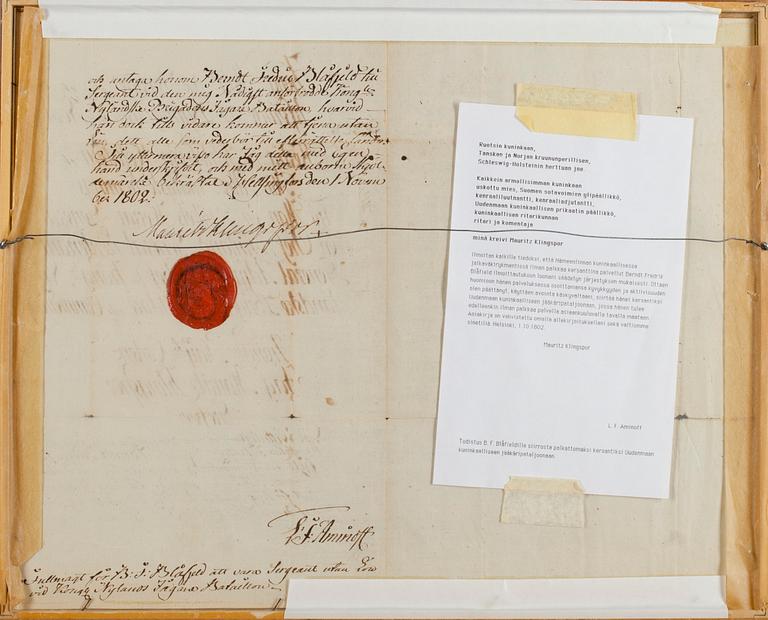 och antaga honom Berndt Fredric Blåfjeld till
Sergeant vid den mig i Nåder anförtrodde Kongl:
Nylandska Brigadens Jägare Bataillon, hvarvid
han dock tills vidare kommer att tjena utan
lön
hand underskrifvit, och med mitt anborna
bekräftat. Helsingfors den 1 Novem
ber 1802.
Mauritz Klingspor.
L. F. Aminoff
Fullmagt för B: F: Blåfjeld att vara Sergeant utan Lön
vid Kongl. Nylands Jägare Bataillon.
Ruotsin kuninkaan,
Tanskan ja Norjan kruununperillisen,
Schleswig-Holsteinin herttuan jne.
Kaikkein armollisimman kuninkaan
uskottu mies, Suomen sotavoimien ylipäällikkö,
kenraaliluutnantti, kenraaliadjutantti,
Uudenmaan kuninkaallisen prikaatin päällikkö,
kuninkaallisen ritarikunnan
ritari ja komentaja
minä kreivi Mauritz Klingspor
Ilmoitan kaikille tiedoksi, että Hämeenlinnan kuninkaallisessa
jalkaväkirykmentissä ilman palkkaa kersanttina palvellut Berndt Fredric
Blåfield ilmoittautuksen luonani säädetyn järjestyksen mukaisesti. Ottaen
huomioon hänen palveluksessa osoittamansa kyvykkyyden ja aktiivisuuden
olen päättänyt, käyttäen avointa käskyvaltaani, siirtää hänet kersantiksi
Uudenmaan kuninkaalliseen jääkäripataljoonaan, jossa hänen tulee
edelleenkin ilman palkkaa palvella asiaankuuluvalla tavalla maataan.
Asiakirja on vahvistettu omalla allekirjoituksellani sekä valtiomme
sinetillä. Helsinki, 1.10.1802.
Mauritz Klingspor
L. F. Aminoff
Todistus B. F. Blåfieldille siirrosta palkattomaksi kersantiksi Uudenmaan
kuninkaalliseen jääkäripataljoonaan.